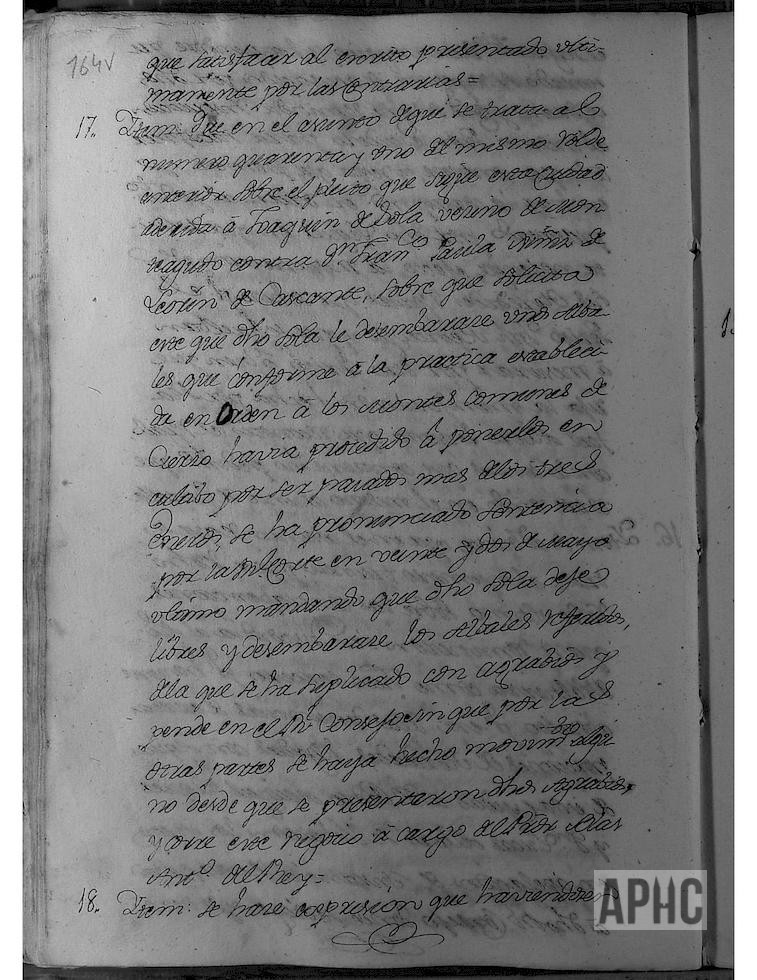 164v
que satisfacer al escrito presentado ulti-
mamente por las Contrarias =
17. Ytem: Que en el asunto de que se trata al
numero quarenta y uno del mismo Rolde
anterior sobre el pleito que sigue esta Ciudad
aderida à Joaquin de Sola vecino de Mon
teagudo contra Dn. Franco Paula de
de Cascante, sobre que solicita
este que dho Sola le desembaraze unos Alba
les que conforme à la practica estableci-
da en Orden à los Montes comunes de
Cierzo havia procedido à ponerlos en
cultibo por ser pasados mas de los tres
se ha pronunciado Sentencia
por la Rl. Corte en veinte y dos de Mayo
ultimo mandando que dho Sola deje
libres y desembaraze los Albales referidos,
de la que se ha suplicado con agrabios y
pende en el Rl. Consejo sin que por las
otras partes se haya hecho movimto algu
no desde que se presentaron dhos Agrabios,
y corre este negocio à cargo del Prör Blas
Anto. del Rey =
18. Ytem: se hace expresion que haviendose
APHC